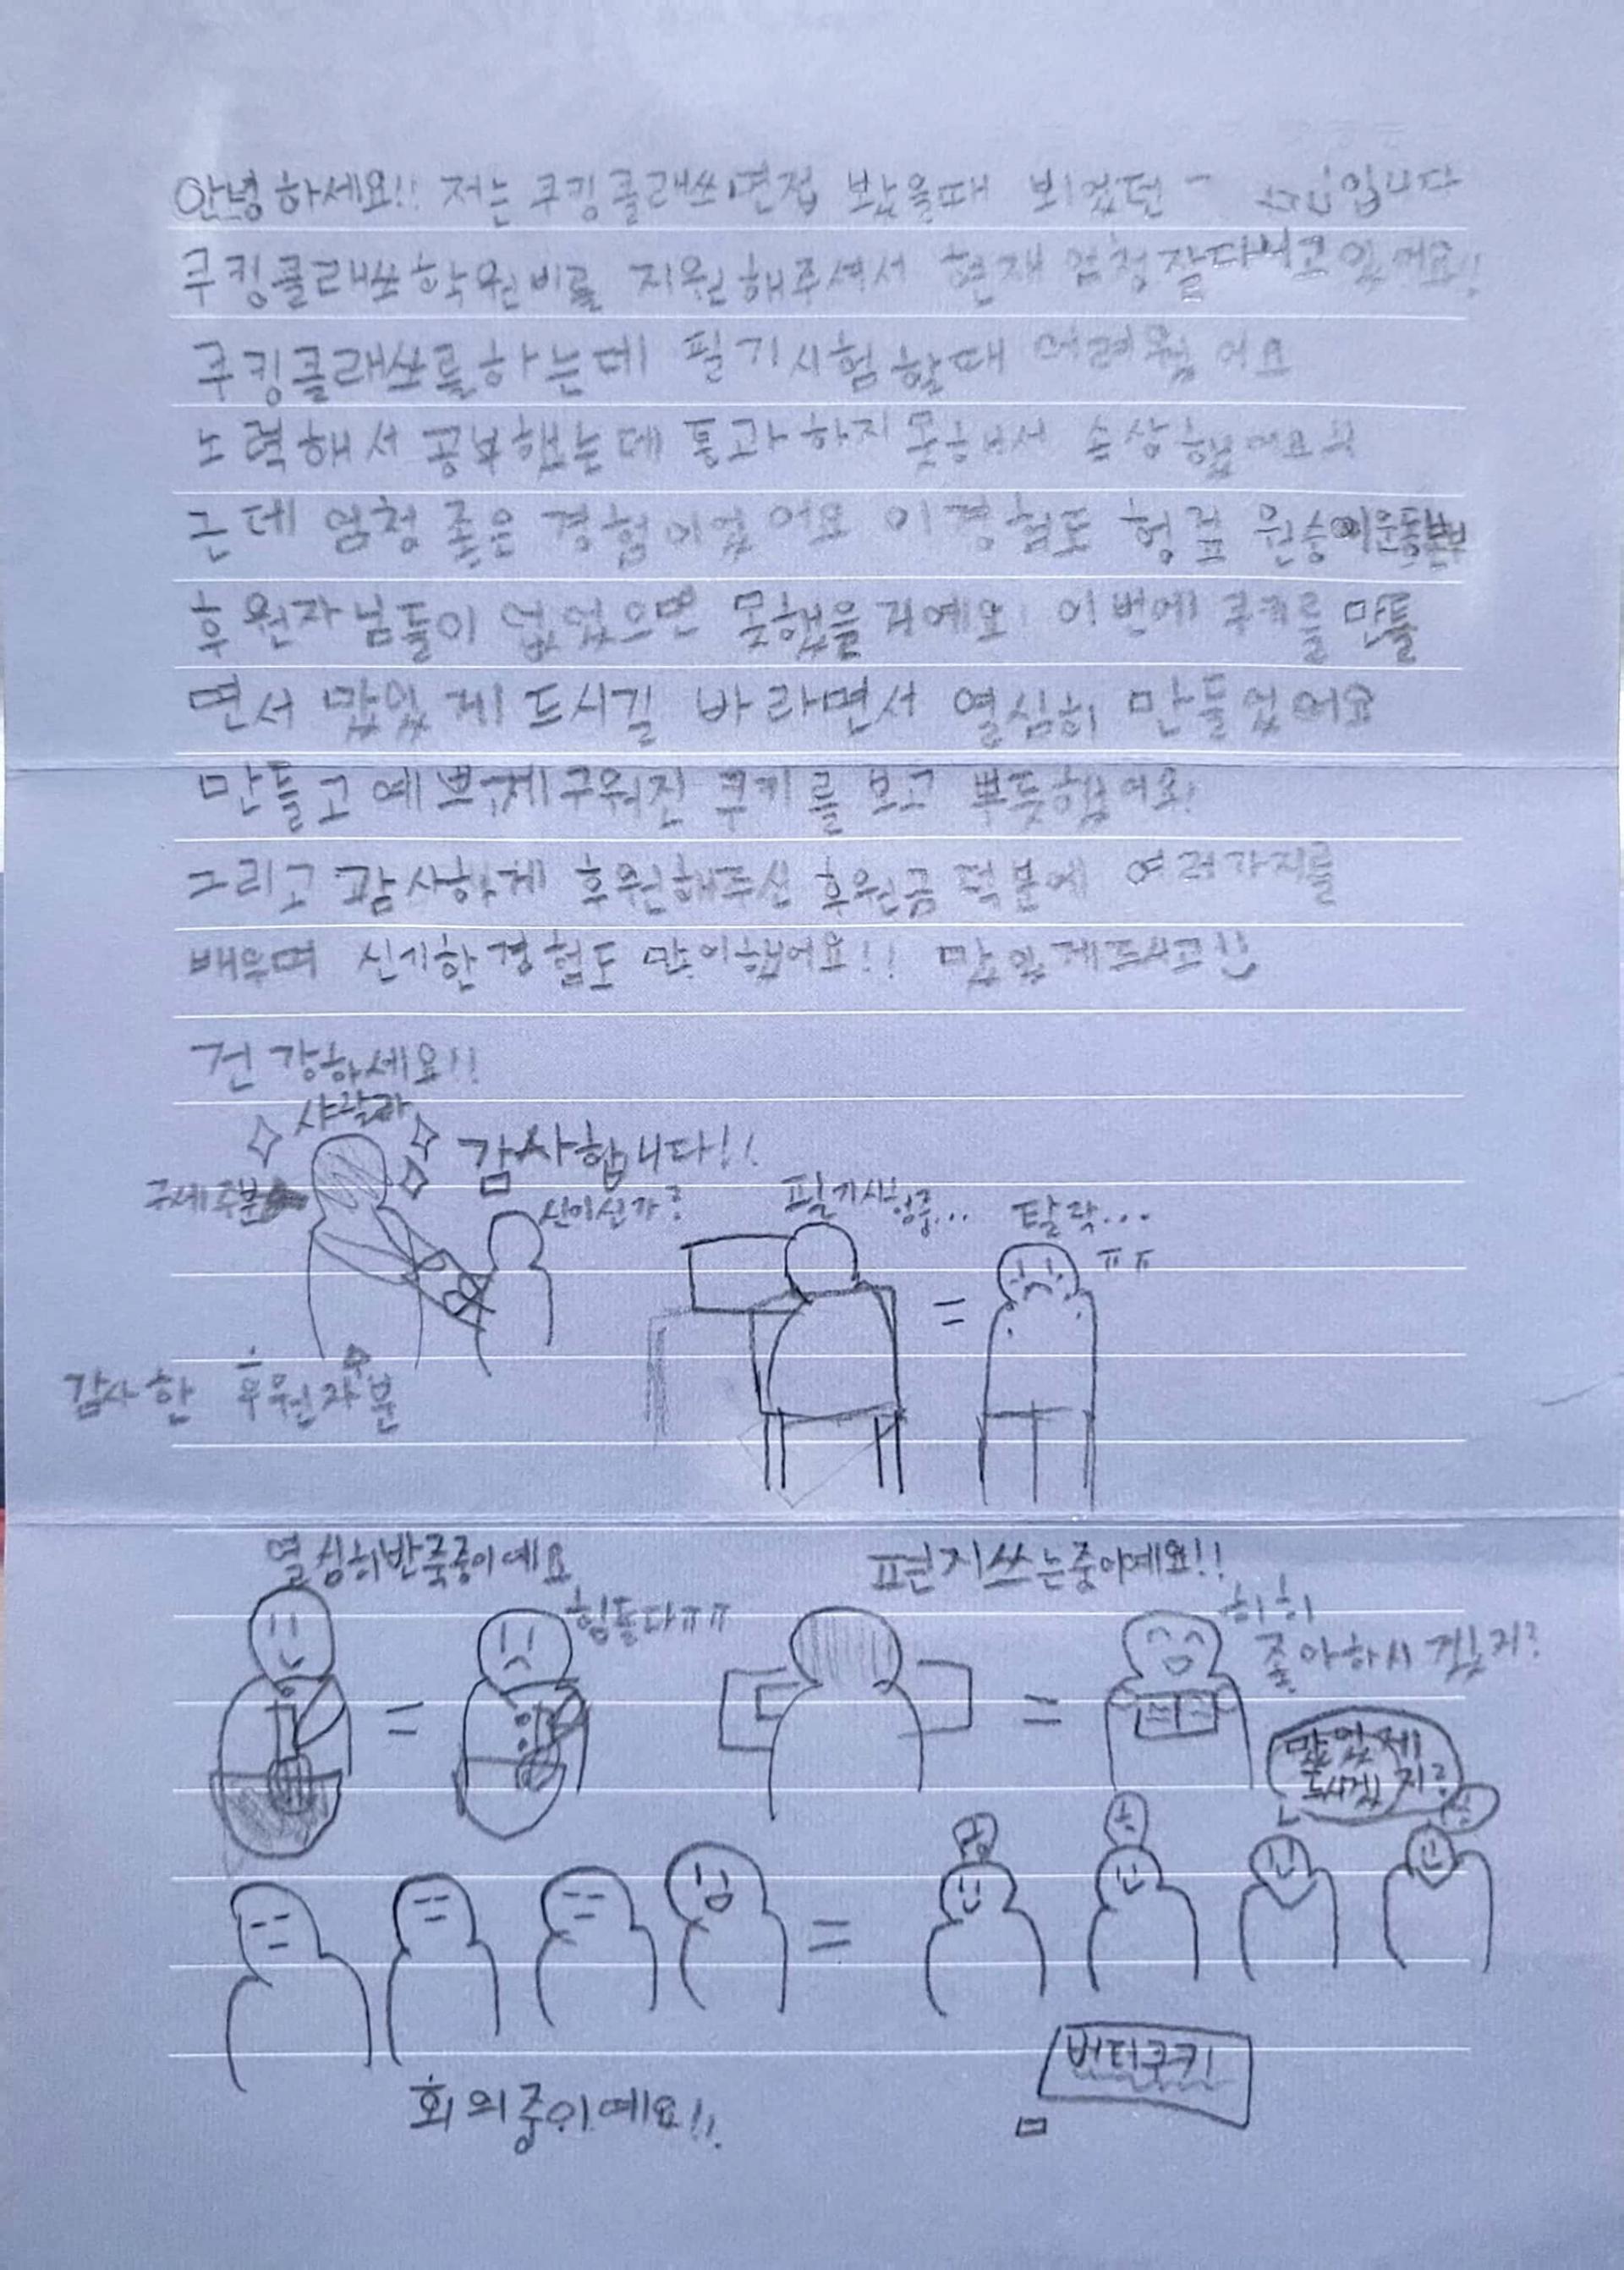 안녕하세요!! 저는 쿠킹클래쓰면접 봤을때 뵈었던 입니다
쿠킹클래쓰학원비를 지원해주셔서 현재 엄청잘다니고있어요!!
쿠킹클래쓰를하는데 필기시험할때 어려웠어요
노력해서 공부했는데 통과하지못해서 속상했어요
근데 엄청 좋은 경험이었어요 이경험도 헝겊 원숭이운동본부
후원자님들이 없었으면 못했을거예요 이번에 쿠키를 만들
면서 맜있게드시길 바라면서 열심히 만들었어요
만들고 예쁘게구워진 쿠키를 보고 뿌듯했어요!
그리고 감사하게 후원해주신 후원금 덕분에 여러가지를
배우며 신기한경험도 많이했어요!! 맜있게드시고
건강하세요!!
샤랄라
감사합니다!!
구세주분
신이신가?
필기시험중...
탈락...
ㅠㅠ
감사한 후원자분
열심히반죽중이예요
편지쓰는중이예요!!
힘들다ㅠㅠ
히히
좋아하시겠지?
맜있게
드시겠지?
회의중이예요!!
버터쿠키